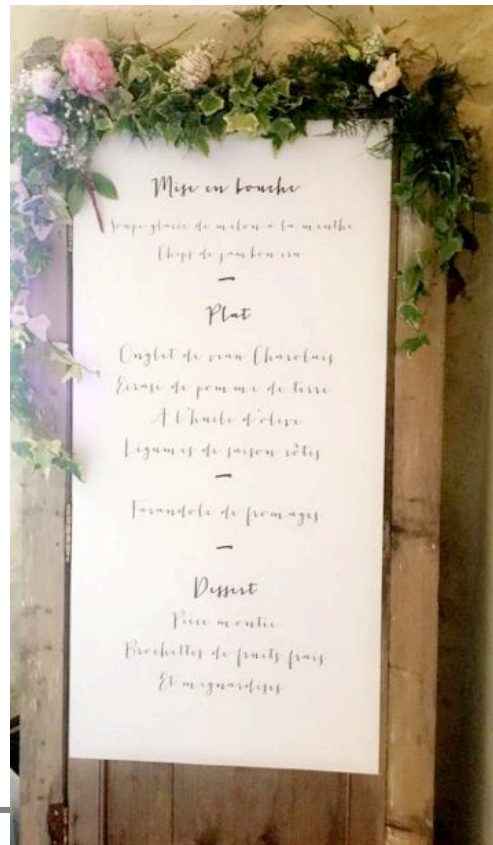 Mise en bouche
Soupe glacée de melon à la menthe
Chips de jambon cru
Plat
Onglet de veau Charolais
Ecrasé de pomme de terre
A l'huile d'olive
Légumes de saison rôtis
Farandole de fromages
Dessert
Pièce montée
Brochettes de fruits frais
Et mignardises